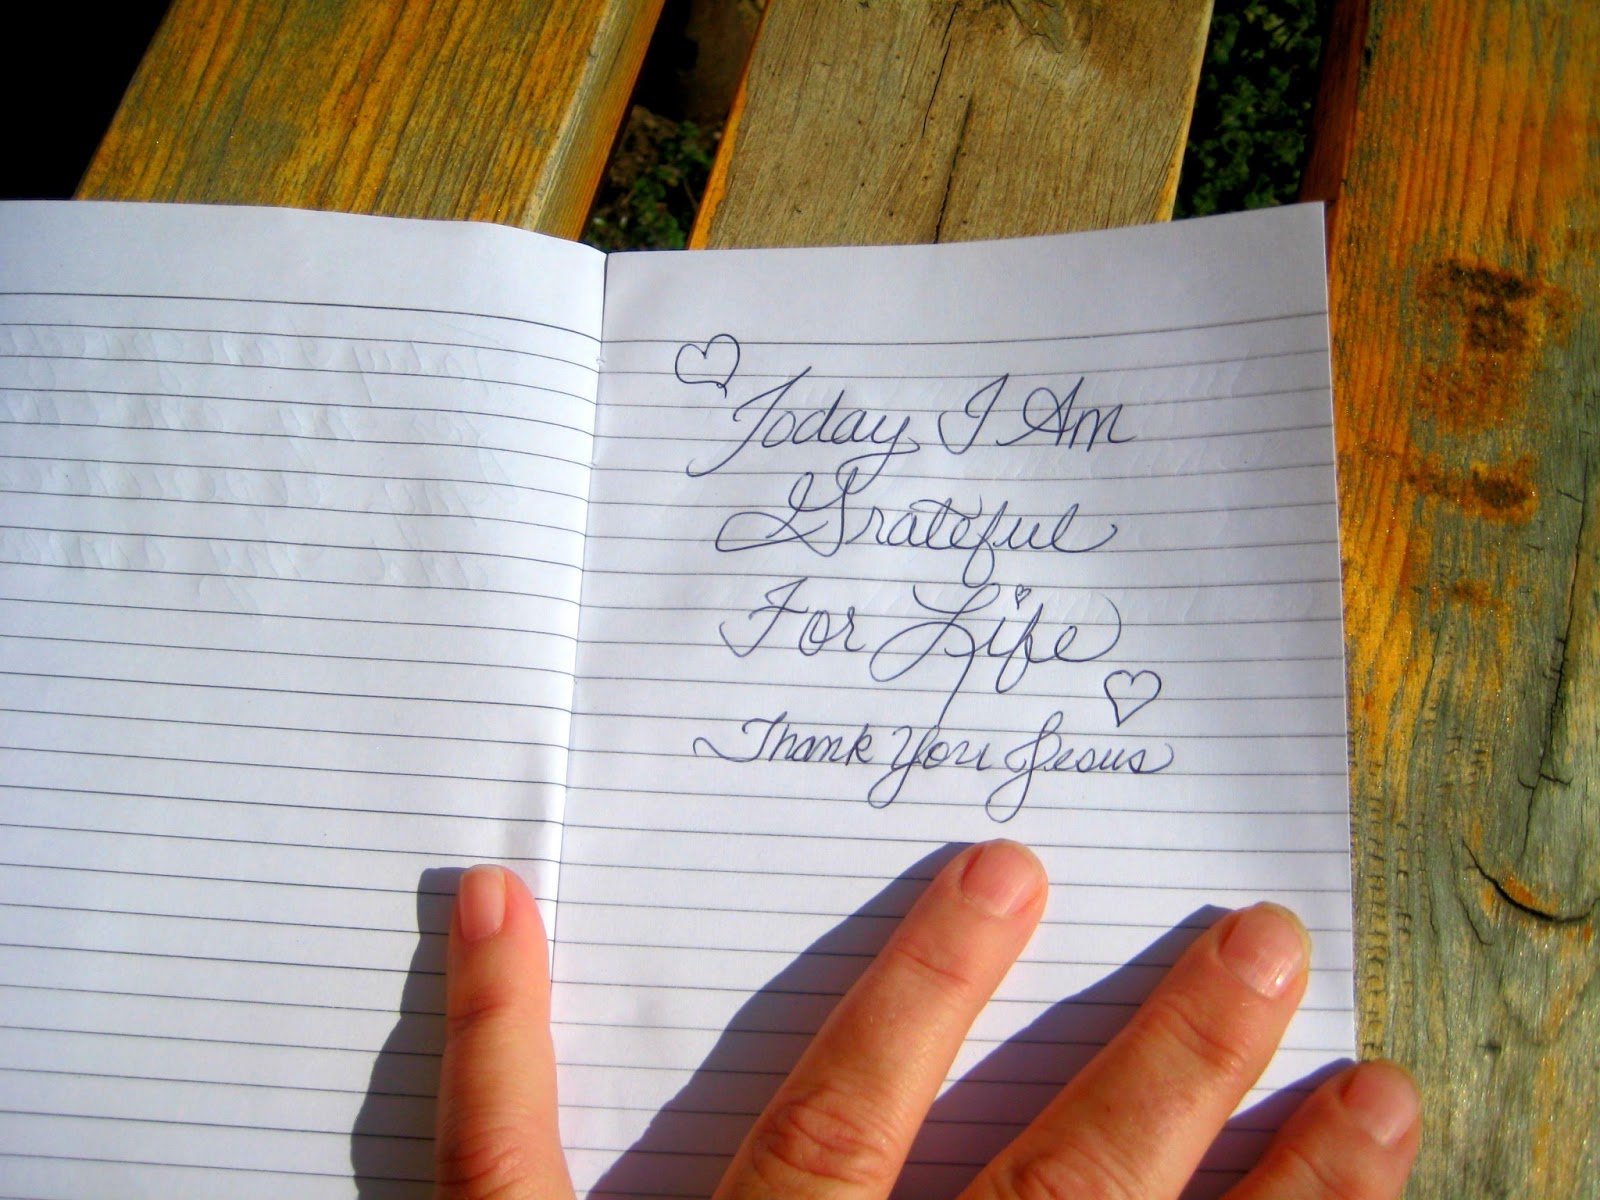 Today, I Am
Grateful
For Life
Thank You Jesus